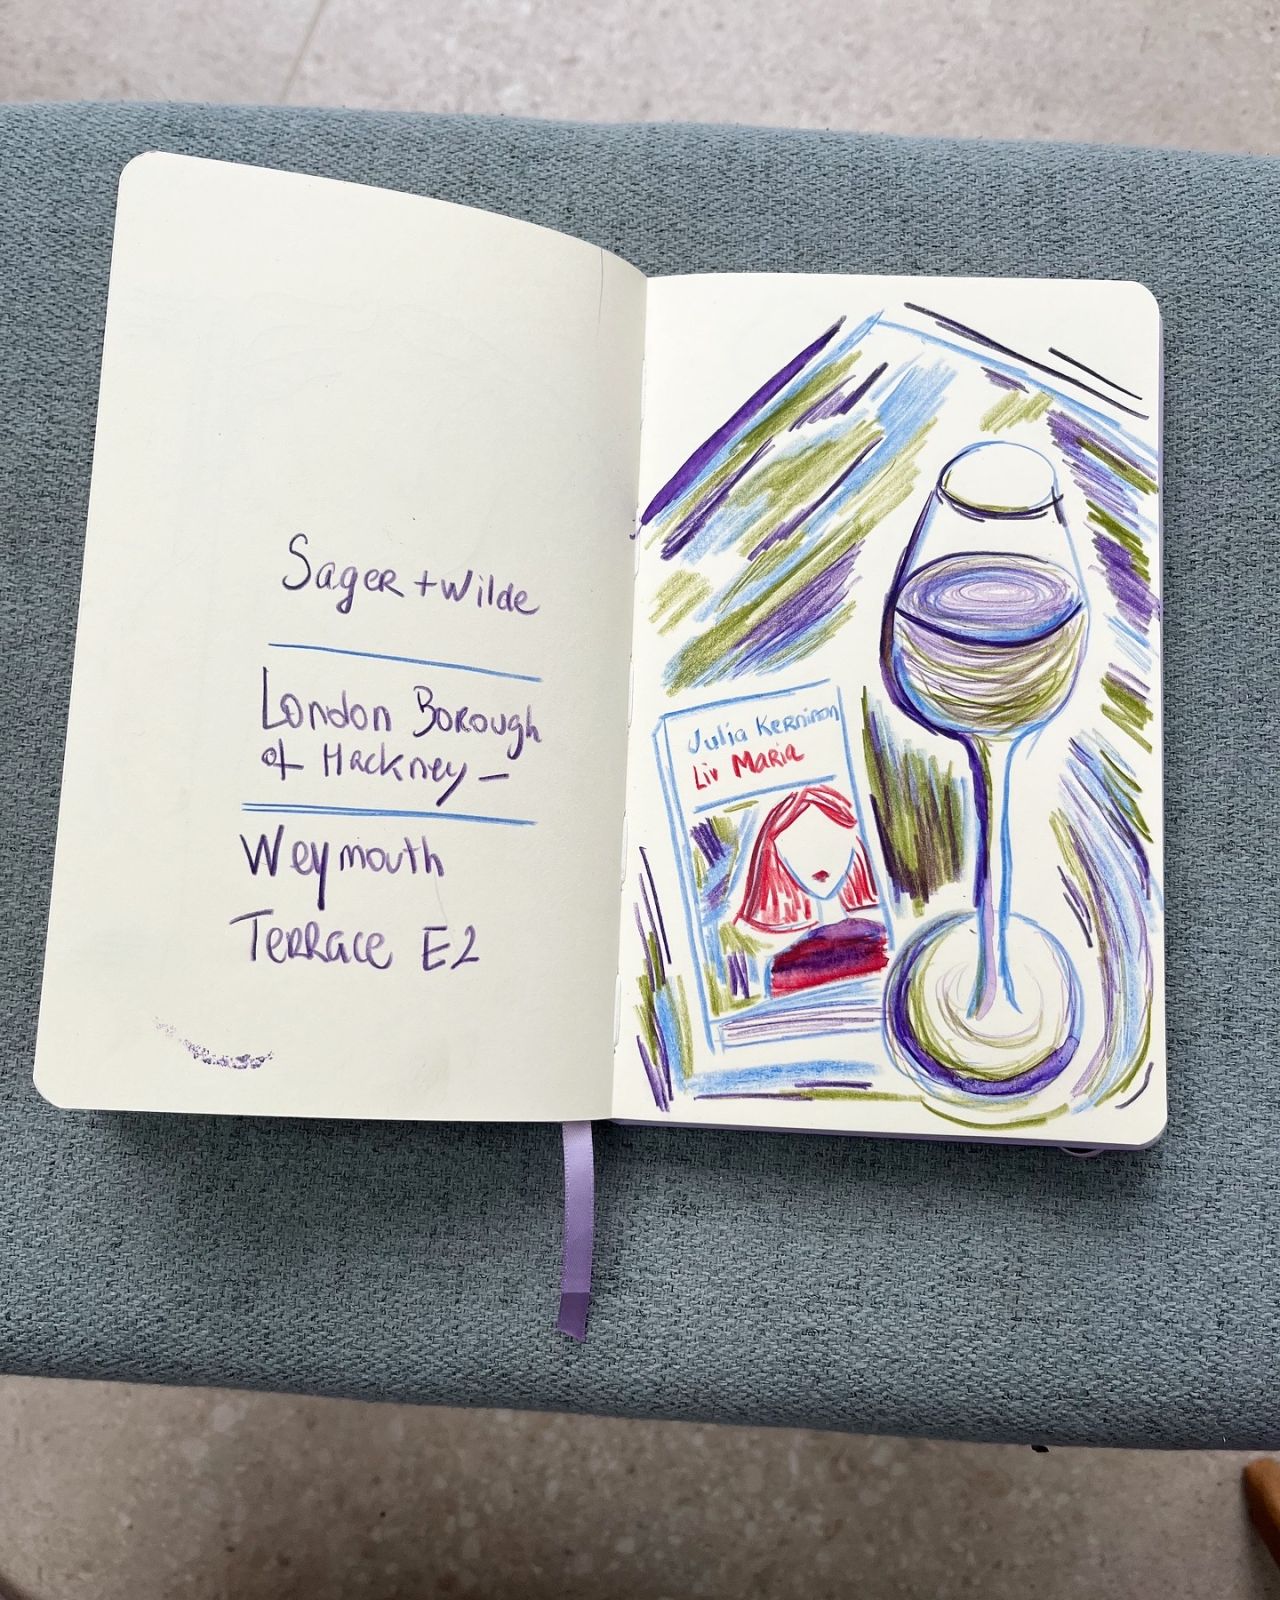 Sager + Wilde
London Borough
of Hackney —
Weymouth
Terrace E2
Julia Kerninon
Liv Maria